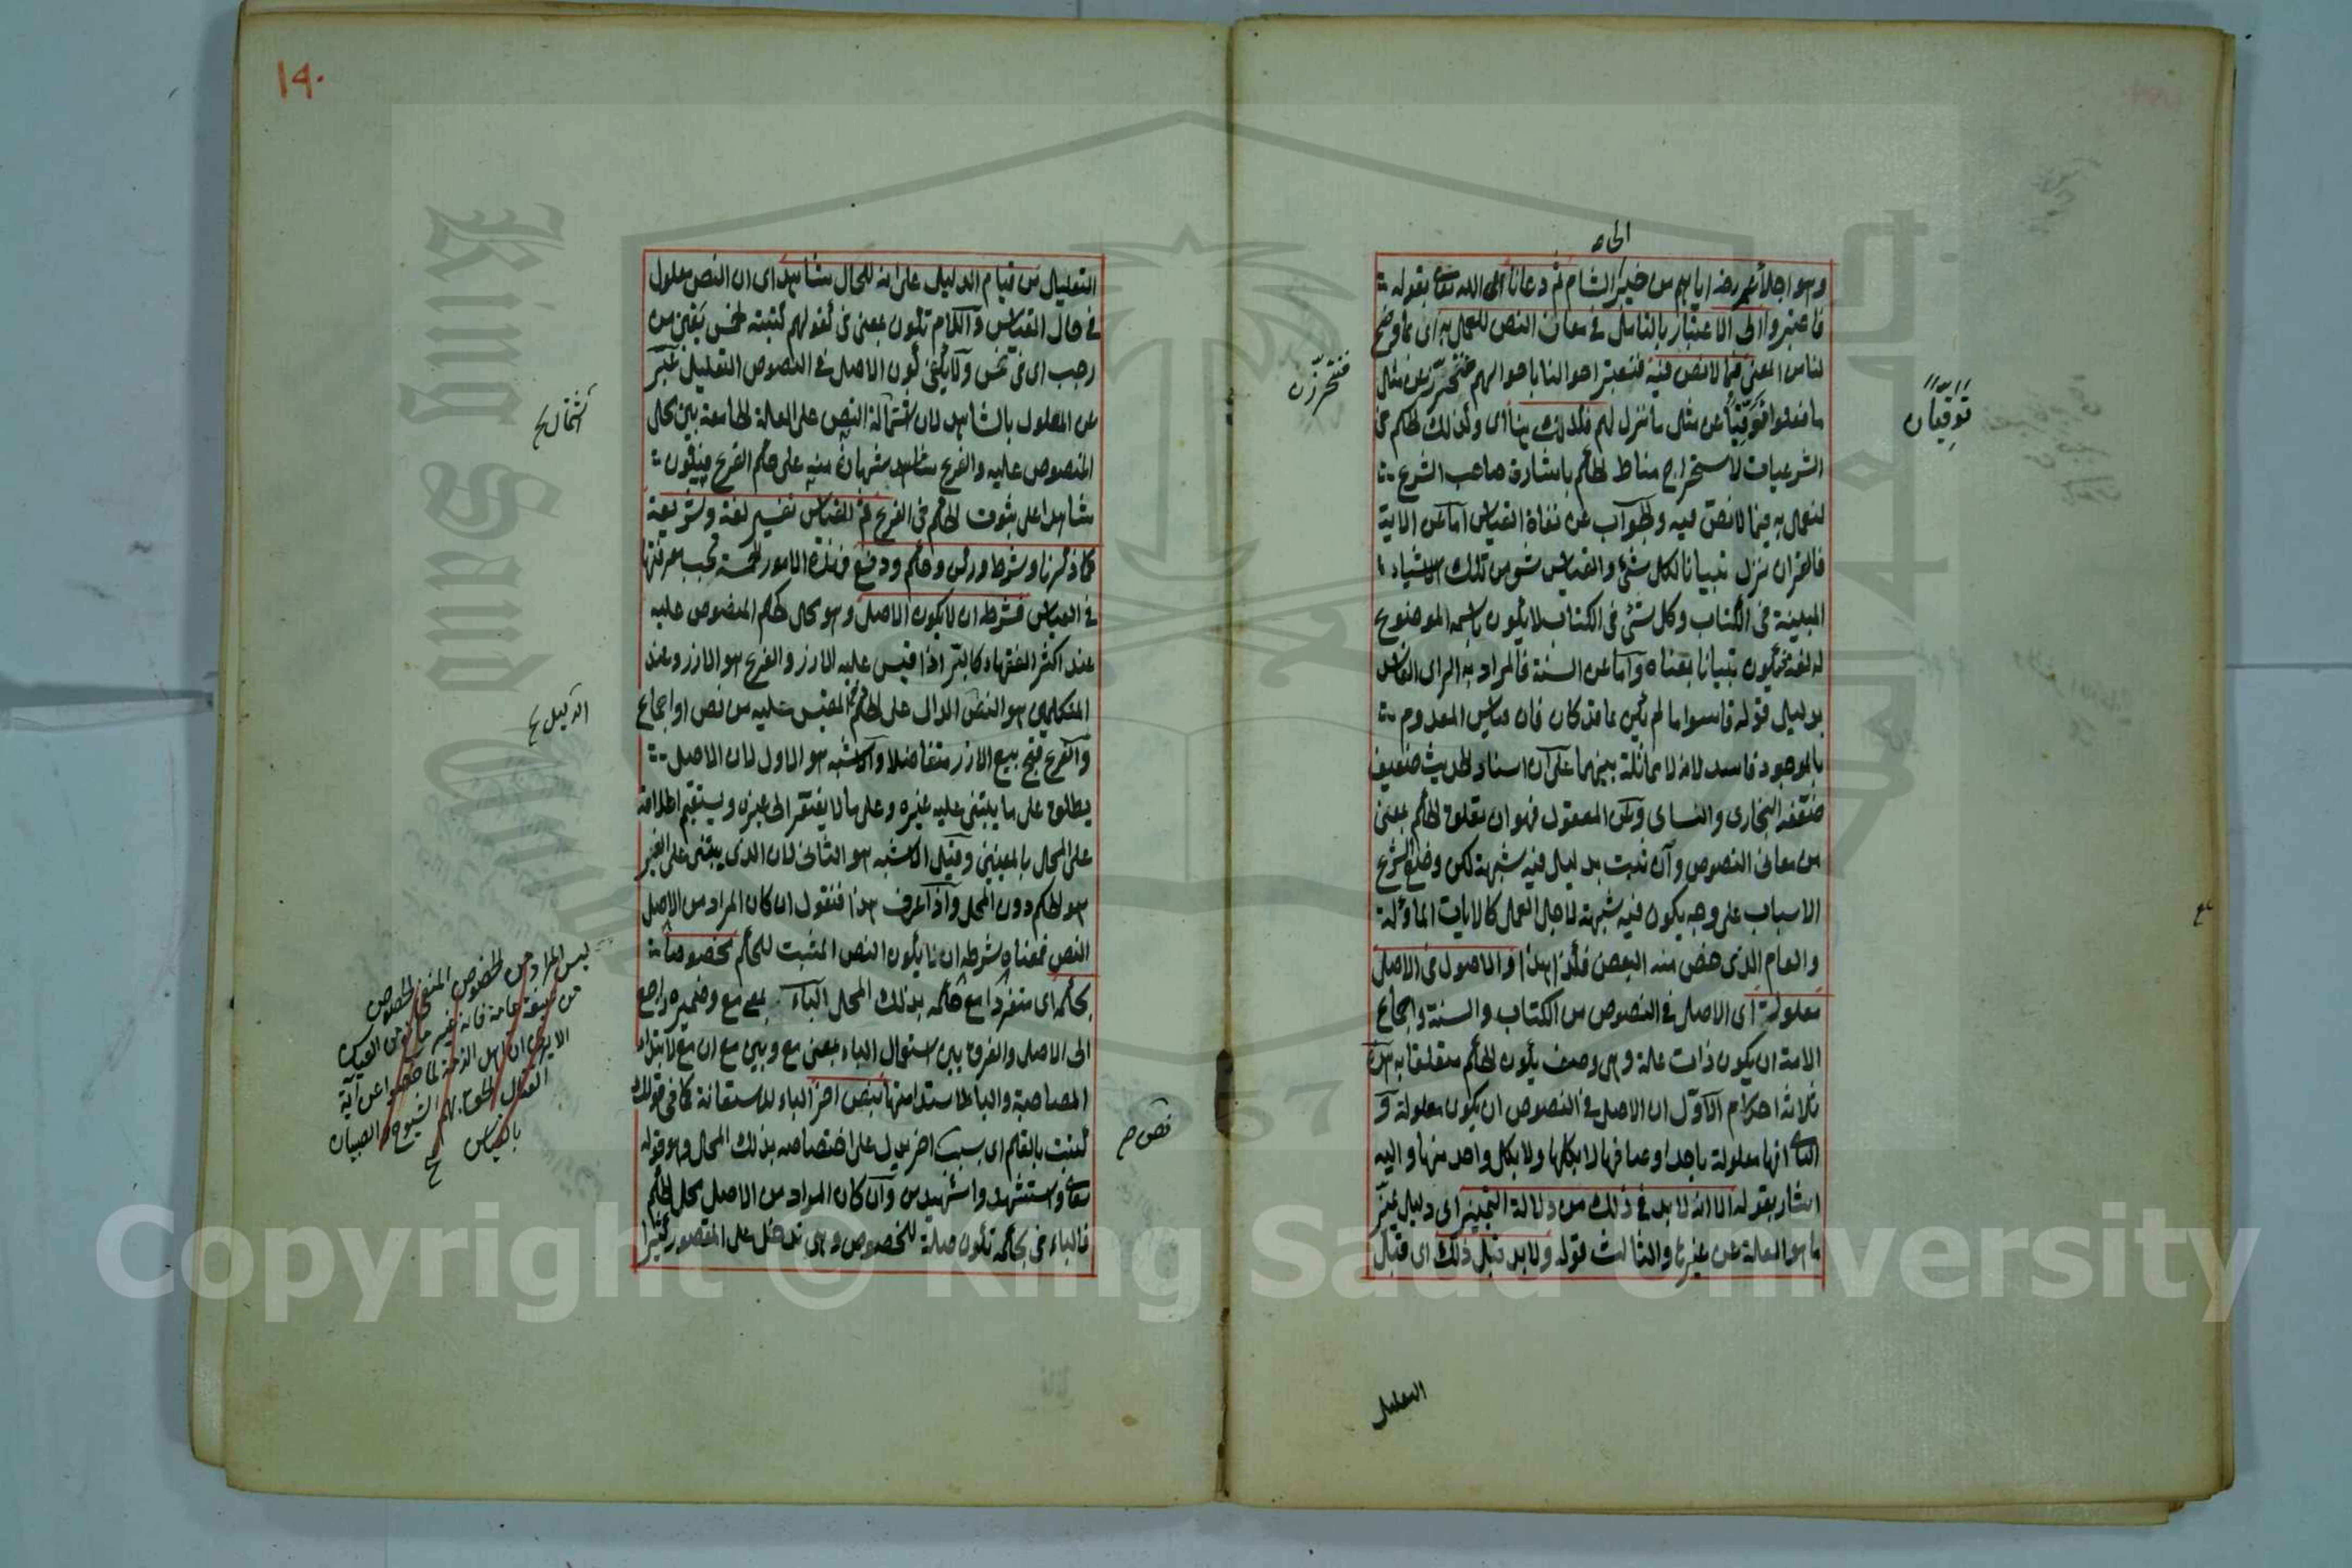 الى
وهو اجلاء عمر رضه اياهم من خيبر الى الشام ثم دعانا الله تعالى بقوله
فاعتبروا الى الاعتبار بالتأمل في معاني النص للعمل به اى بما وضح
لنا من المعنى فيما لا نص فيه فنعتبر احوالنا باحوالهم فنحترز عن مثل
ما فعلوا توقيا عن مثل ما نزل بهم فكذلك هنا اى وكذلك الحكم فى
الشرعيات لاستخراج مناط الحكم باشارة صاحب الشرع
لنعمل به فيما لا نص فيه والجواب عن نفاة القياس اما عن الاية
فالقران نزل تبيانا لكل شئ والقياس شئ من تلك الاشياء
المبينة فى الكتاب وكل شئ فى الكتاب لا يكون باسمه الموضوع
له لغة فيكون تبيانا بمعناه واما عن السنة فالمراد به الراى الفاسد
بدليل قوله قاسوا ما لم يكن بما قد كان فان قياس المعدوم
بالموجود فاسد لانه لا مماثلة بينهما على ان اسناد الحديث ضعيف
ضعفه البخارى والنساى وعن المعقول فهو ان تعلق الحكم بمعنى
من معانى النصوص وان ثبت بدليل فيه شبهة لكن وضع الشرع
الاسباب على وجه يكون فيه شبهة لاجل العمل كالايات الماوّلة
والعام الذى خص منه البعض فكذا هذا والاصول فى الاصل
معلولة اى الاصل فى النصوص من الكتاب والسنة واجماع
الامة ان يكون ذات علة وهى وصف يكون الحكم متعلقا به هذه
ثلاثة احكام الاول ان الاصل فى النصوص ان يكون معلولة و
الثانى انها معلولة باحد اوصافها لا بكلها ولا بكل واحد منها واليه
اشار بقوله الا انه لا بد فى ذلك من دلالة التمييز اى دليل يميز
ما هو العلة عن غيرها والثالث قوله ولا بد قبل ذلك اى قبل
فنحترز ن
توقيا ن
التعليل
١٩٠
التعليل من قيام الدليل على انه للحال شاهد اى ان النص معلول
فى حال القياس واللام تكون بمعنى فى كقولهم كتبته لخمس بقين من
رجب اى فى خمس ولا يكفى كون الاصل فى النصوص التعليل عبر
عن المعلول بالشاهد لان اشتمالة النص على العلة الجامعة بين محل
المنصوص عليه والفرع شاهد شهادة منه على حكم الفرع فيكون
شاهدا على ثبوت الحكم فى الفرع ثم للقياس تفسير لغة وشريعة
كما ذكرنا وشرط وركن وحكم ودفع فهذه الامور الخمسة تجب معرفتها
فى القياس فشرطه ان لا يكون الاصل وهو محل الحكم المنصوص عليه
عند اكثر الفقهاء كالبر اذا قيس عليه الارز والفرع هو الارز وعند
المتكلمين هو النص الدال على الحكم المقيس عليه من نص او اجماع
والفرع قبح بيع الارز متفاضلا والاشبه هو الاول لان الاصل
يطلق على ما يبتنى عليه غيره وعلى ما لا يفتقر الى غيره ويستقيم اطلاقه
على المحل بالمعنيين وقيل الاشبه هو الثانى لان الذى يبتنى على الغير
هو الحكم دون المحل واذا عرف هذا فنقول ان كان المراد من الاصل
النص فمعناه شرطه ان لا يكون النص المثبت للحكم مخصوصا
بحكمه اى متفردا مع حكمه بذلك المحل الباء بمعنى مع وضميره راجع
الى الاصل والفرق بين استعمال الباء بمعنى مع وبين مع ان مع لابتداء
المصاحبة والباء لاستدامتها بنص اخر الباء للاستعانة كما فى قولك
كتبت بالقلم اى بسبب اخر يدل على اختصاصه بذلك المحل وهو قوله
تعالى واستشهدوا شهيدين وان كان المراد من الاصل محل الحكم
فالباء فى بحكمه تكون صلة للخصوص وهى تدخل على المقصور كثيرا
اشتمال ح
الدليل ح
ليس المراد من الخصوص المنفى الخصوص
من صيغة عامة فانه غير مانع من القياس
الا يرى ان اهل الذمة لما خصوا عن آية
القتال الحق بهم الشيوخ والصبيان
بالقياس ح
نص ح